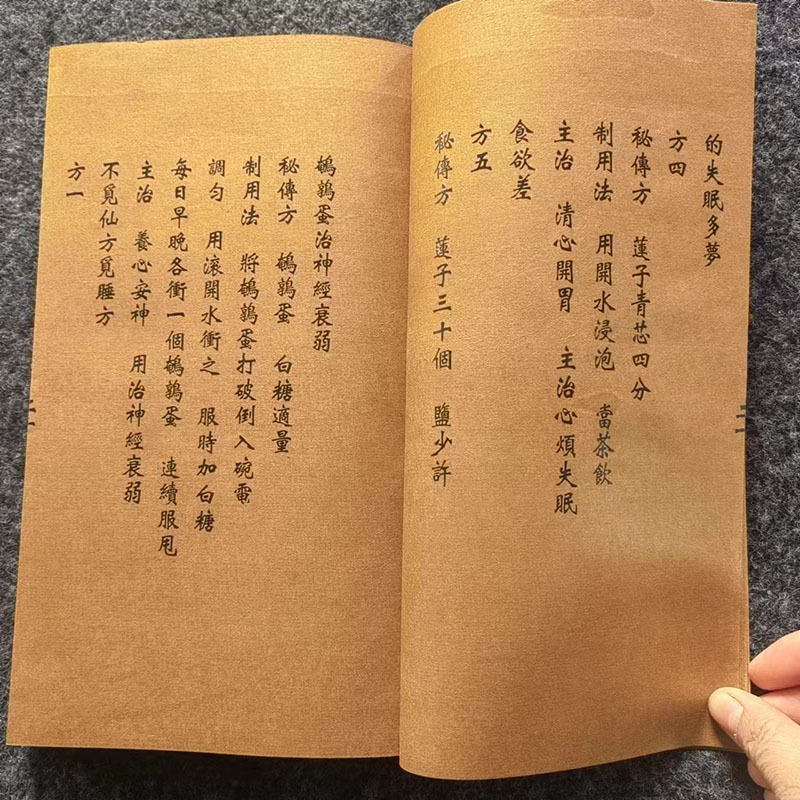 的失眠多夢
方四
秘傳方 蓮子青芯四分
制用法 用開水浸泡 當茶飲
主治 清心開胃 主治心煩失眠
食欲差
方五
秘傳方 蓮子三十個 鹽少許
鵪鶉蛋治神經衰弱
秘傳方 鵪鶉蛋 白糖適量
制用法 將鵪鶉蛋打破倒入碗電
調勻 用滾開水衝之 服時加白糖
每日早晚各衝一個鵪鶉蛋 連續服甩
主治 養心安神 用治神經衰弱
不覓仙方覓睡方
方一